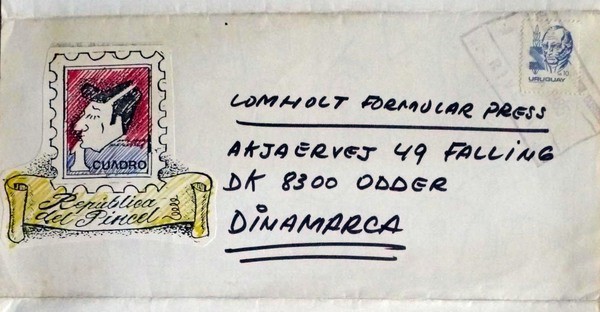 CUADRO
República
del Pincel
LOMHOLT FORMULAR PRESS
AKJAERVEJ 49 FALLING
DK 8300 ODDER
DINAMARCA
URUGUAY